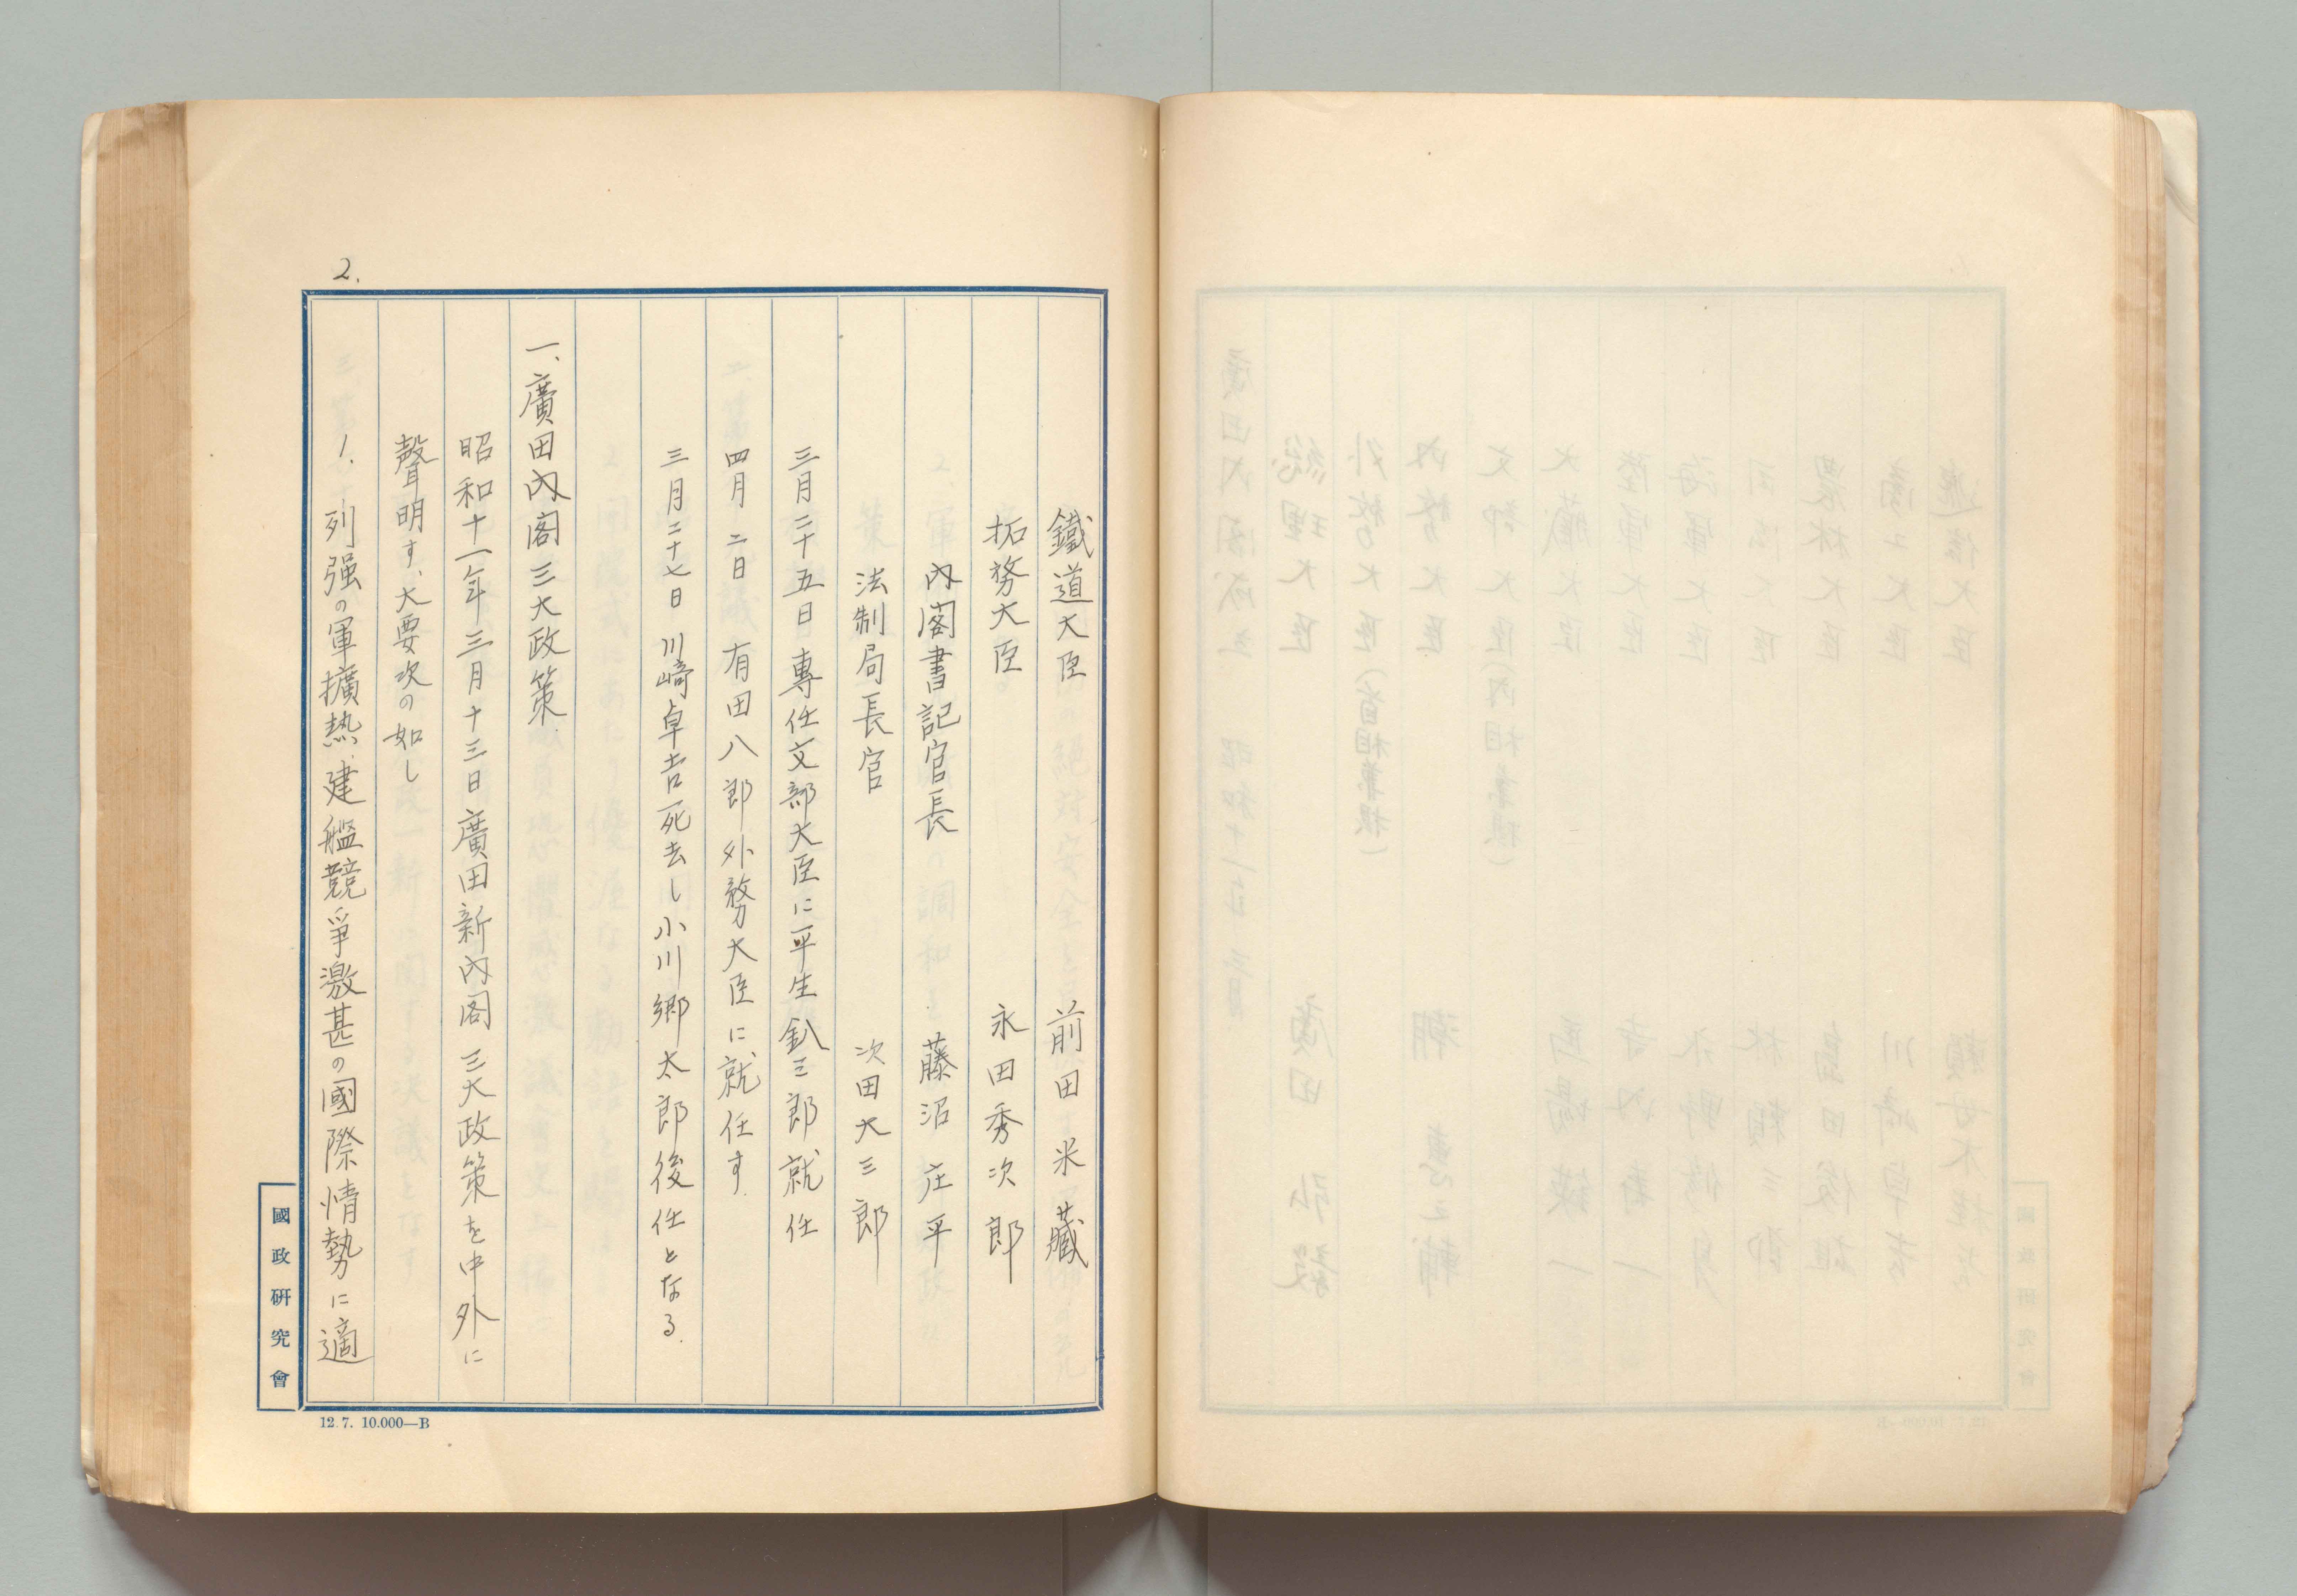 2.
鐵道大臣 前田米藏
拓務大臣 永田秀次郎
內閣書記官長 藤沼庄平
法制局長官 次田大三郎
三月二十五日專任文部大臣に平生釟三郎就任
四月二日有田八郎外務大臣に就任す.
三月二十七日川崎卓吉死去し小川郷太郎後任となる.
一、廣田內閣三大政策
昭和十一年三月十三日廣田新內閣三大政策を中外に
聲明す、大要次の如し
1. 列强の軍擴熱、建艦競爭激甚の國際情勢に適
國政硏究會
12.7. 10.000—B